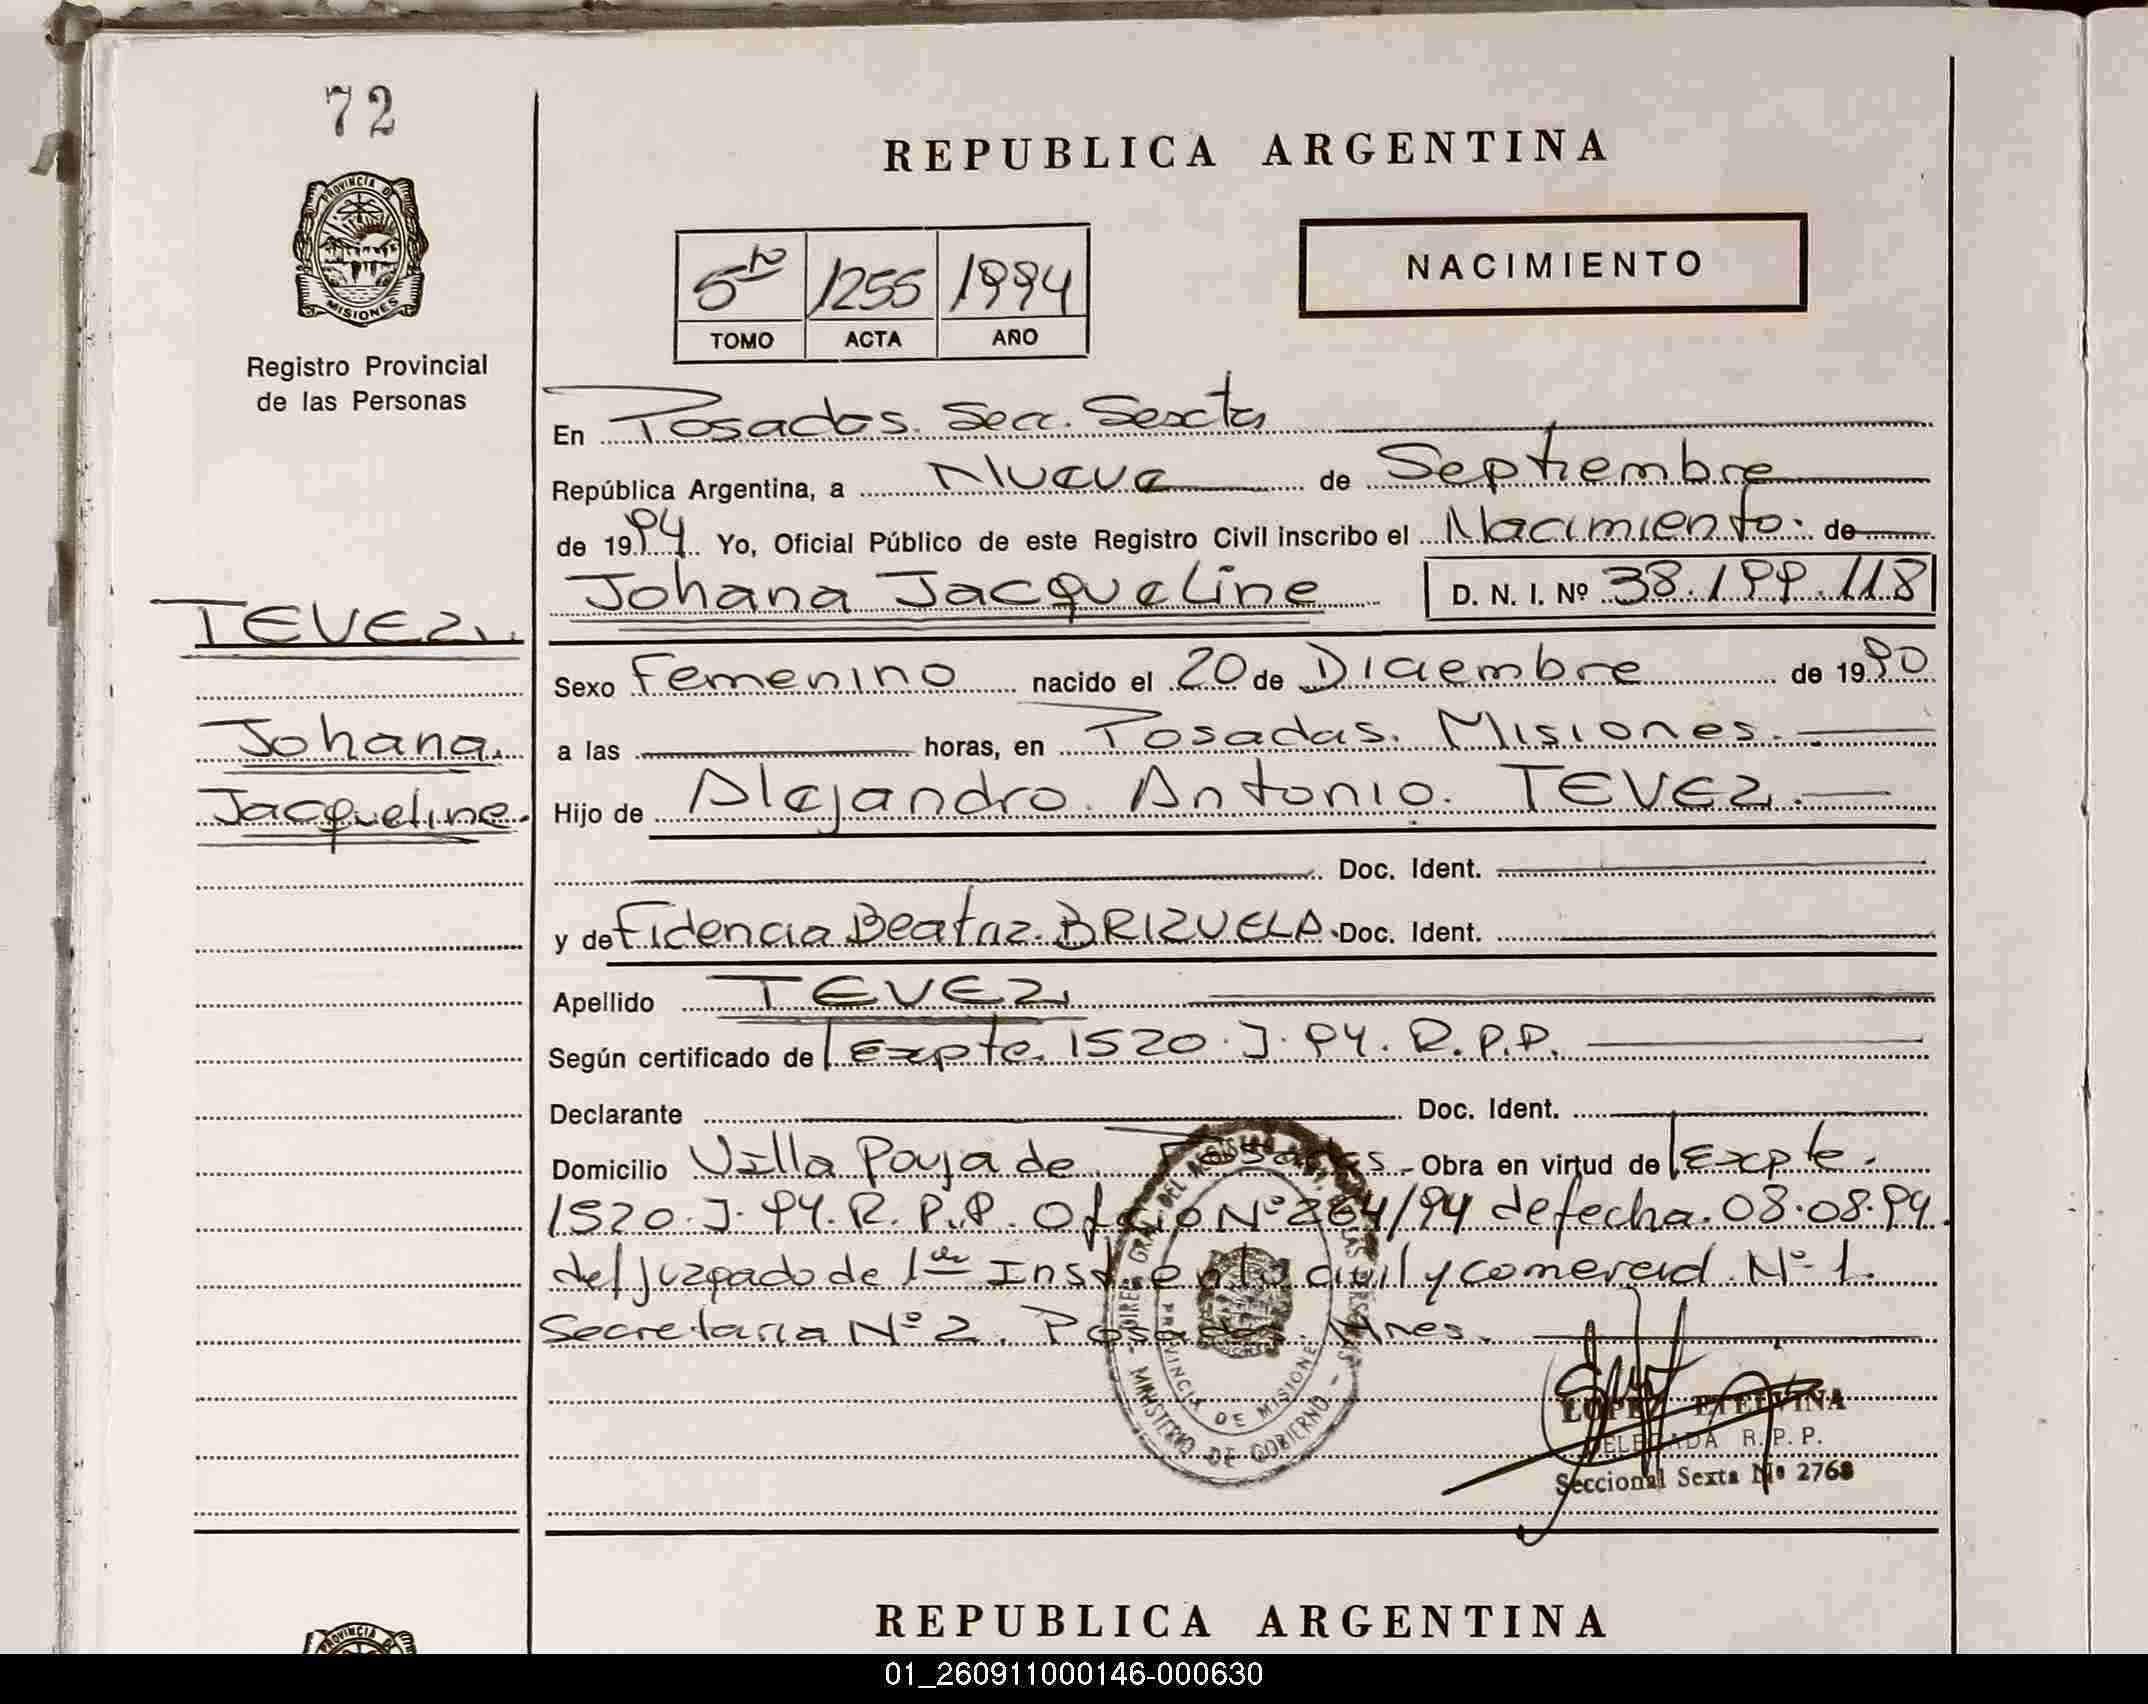 72
PROVINCIA DE
MISIONES
Registro Provincial
de las Personas
REPUBLICA ARGENTINA
NACIMIENTO
5to 1255 1994
TOMO ACTA AÑO
En Posadas. Secc. Sexta
República Argentina, a Nueve de Septiembre
de 1994 Yo, Oficial Público de este Registro Civil inscribo el Nacimiento. de
Johana Jacqueline D. N. I. Nº 38.199.118
TEVEZ
Johana
Jacqueline.
Sexo Femenino nacido el 20 de Diciembre de 1990
a las horas, en Posadas. Misiones.
Hijo de Alejandro Antonio. TEVEZ.
Doc. Ident.
y de Fidencia Beatriz. BRIZUELA. Doc. Ident.
Apellido TEVEZ
Según certificado de Expte. 1520. J. 94. R.P.P.
Declarante Doc. Ident.
Domicilio Villa Poujade Posadas. Obra en virtud de Expte.
1520. J. 94. R.P.P. Oficio Nº 264/94 de fecha. 08.08.94.
del juzgado de 1era Inst. en lo civil y comercial Nº 1.
Secretaria Nº 2. Posadas. Mnes.
MINISTERIO DE GOBIERNO
PROVINCIA DE MISIONES
LOPEZ ETELVINA
DELEGADA R. P. P.
Seccional Sexta Nº 2768
REPUBLICA ARGENTINA
PROVINCIA DE
01_260911000146-000630